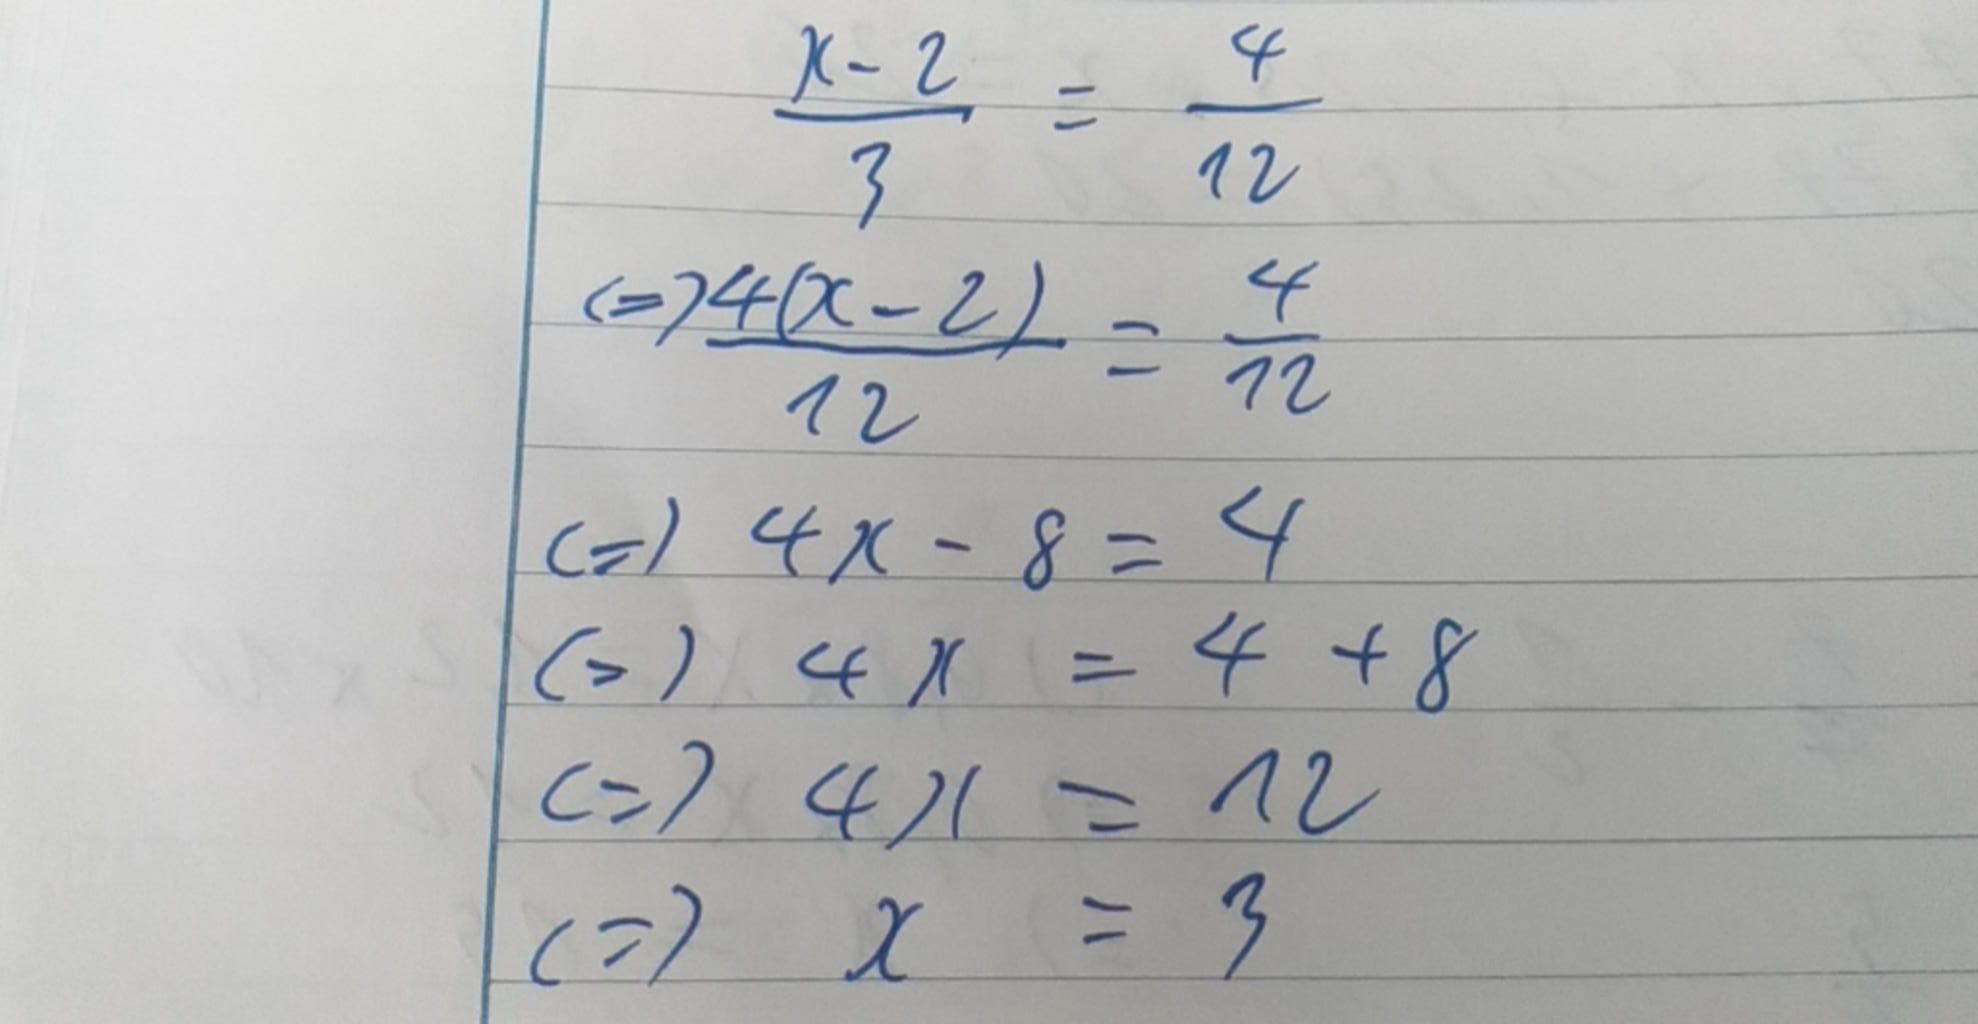 x-2/3 = 4/12
<=> 4(x-2)/12 = 4/12
<=> 4x - 8 = 4
<=> 4x = 4 + 8
<=> 4x = 12
<=> x = 3